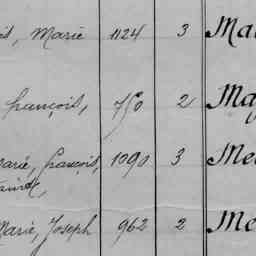 Marie 1124 3 Ma
françois, 750 2 Ma
Marie, françois, 1090 3 Me
Marie, Joseph 962 2 Me